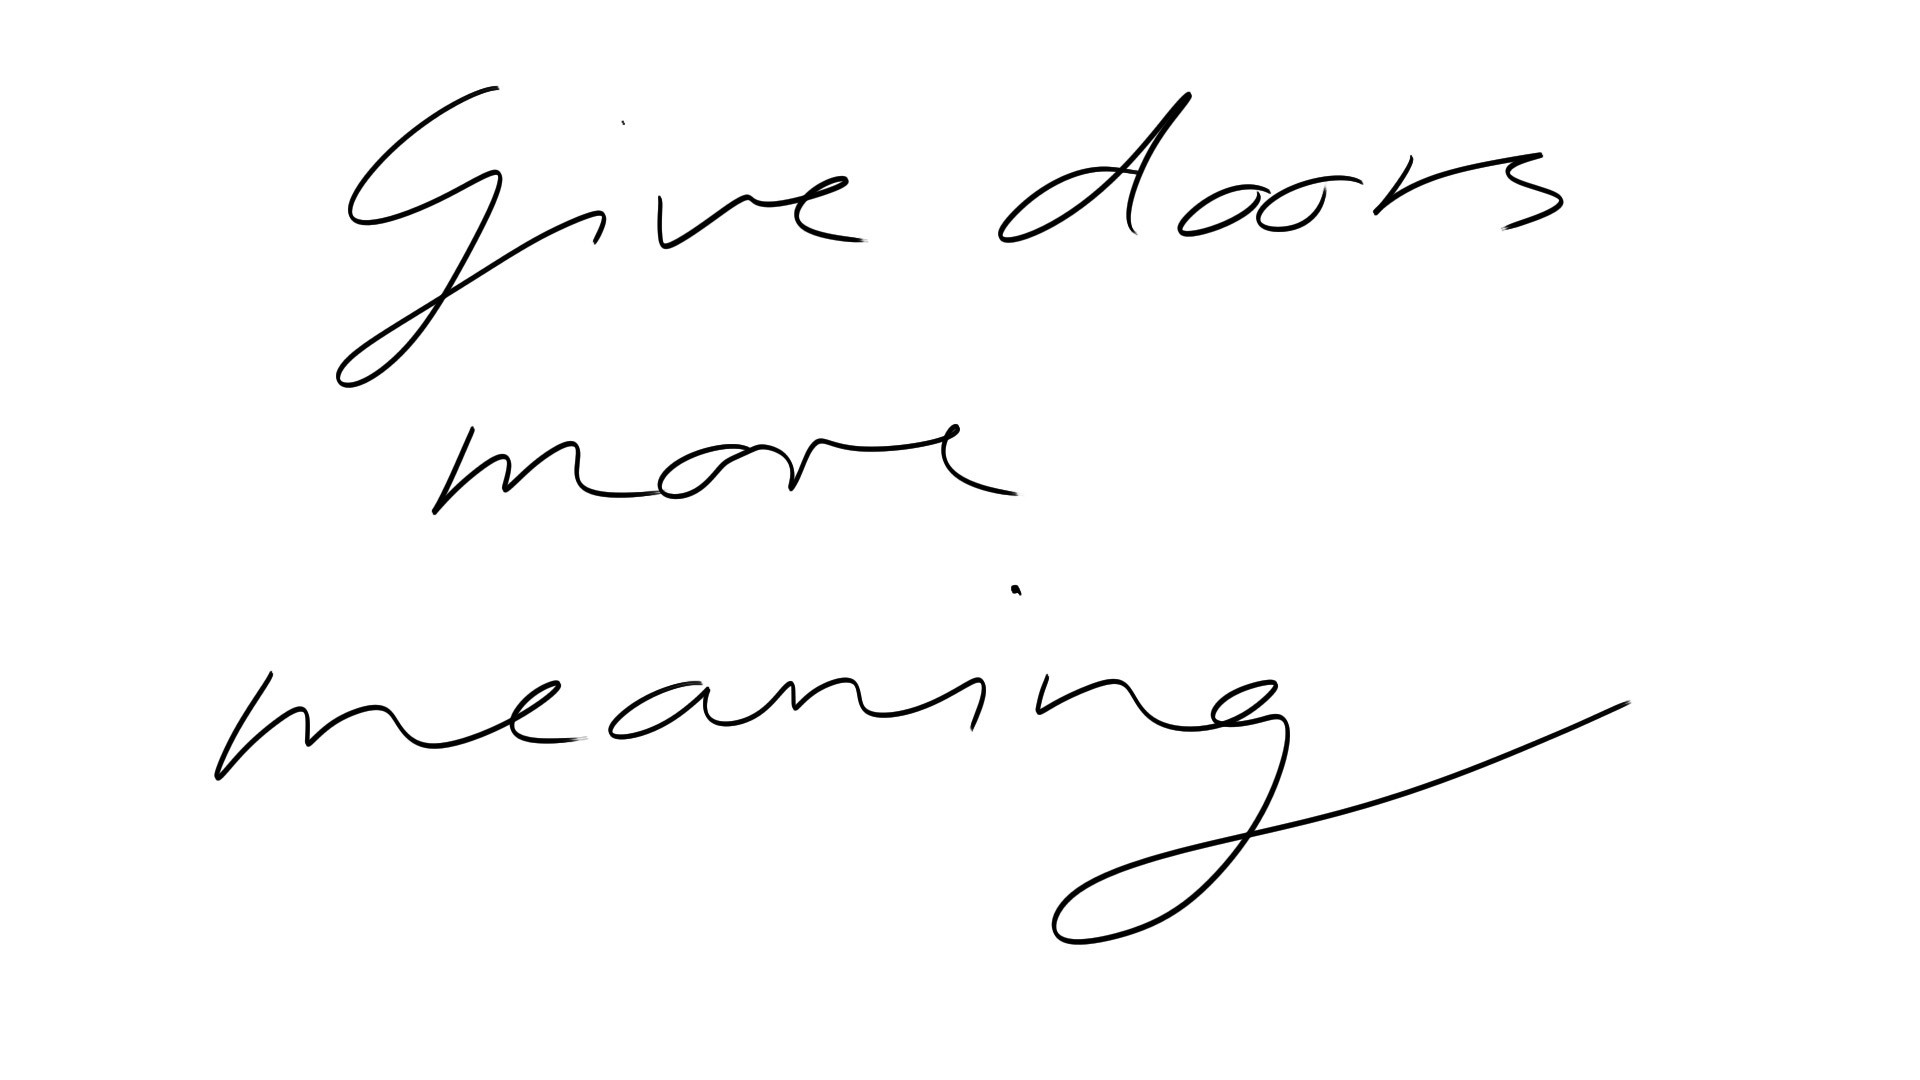 Give doors
more
meaning